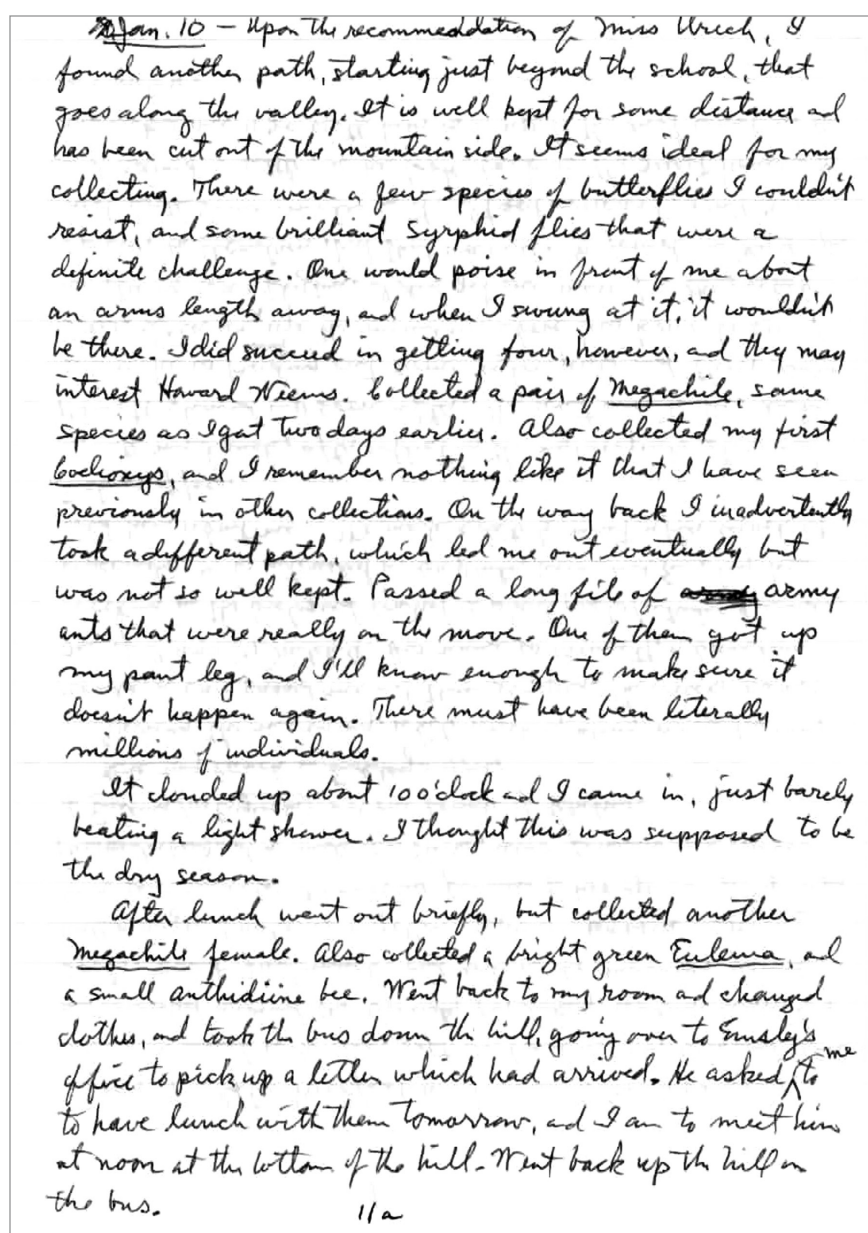 Jan. 10 – Upon the recommendation of Miss Urech, I
found another path, starting just beyond the school, that
goes along the valley. It is well kept for some distance and
has been cut out of the mountain side. It seems ideal for my
collecting. There were a few species of butterflies I couldn't
resist, and some brilliant Syrphid flies that were a
definite challenge. One would poise in front of me about
an arms length away, and when I swung at it, it wouldn't
be there. I did succeed in getting four, however, and they may
interest Howard Weems. Collected a pair of Megachile, same
species as I got two days earlier. Also collected my first
Coelioxys, and I remember nothing like it that I have seen
previously in other collections. On the way back I inadvertently
took a different path, which led me out eventually but
was not so well kept. Passed a long file of army
ants that were really on the move. One of them got up
my pant leg, and I'll know enough to make sure it
doesn't happen again. There must have been literally
millions of individuals.
It clouded up about 10 o'clock and I came in, just barely
beating a light shower. I thought this was supposed to be
the dry season.
After lunch went out briefly, but collected another
Megachile female. Also collected a bright green Eulema, and
a small anthidiine bee. Went back to my room and changed
clothes, and took the bus down the hill, going over to Emsley's
office to pick up a letter which had arrived. He asked me to
to have lunch with them tomorrow, and I am to meet him
at noon at the bottom of the hill. Went back up the hill on
the bus.
11a